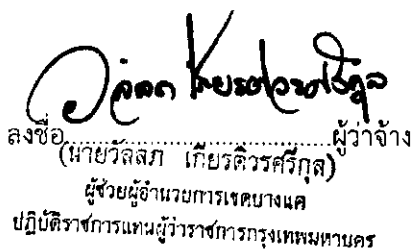 ลงชื่อ........................................ผู้ว่าจ้าง
(นายวัลลภ เกียรติวรศรีกุล)
ผู้ช่วยผู้อำนวยการเขตบางแค
ปฏิบัติราชการแทนผู้ว่าราชการกรุงเทพมหานคร